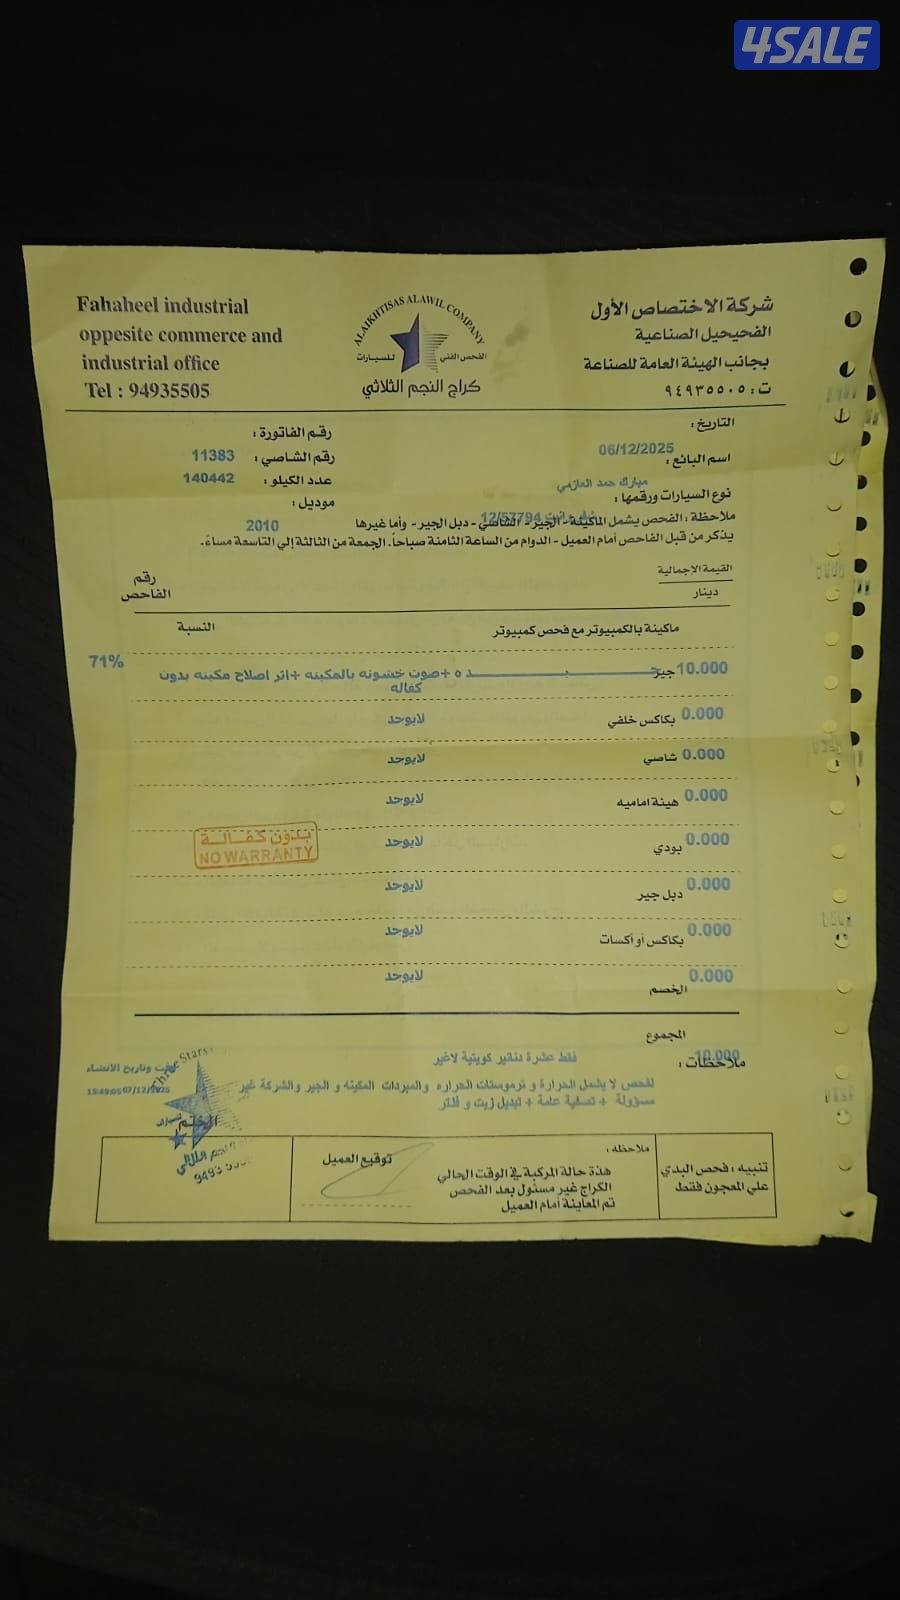 4SALE
Fahaheel industrial
oppesite commerce and
industrial office
Tel : 94935505
ALAIKHTISAS ALAWIL COMPANY
الفحص الفني للسيارات
كراج النجم الثلاثي
شركة الاختصاص الأول
الفحيحيل الصناعية
بجانب الهيئة العامة للصناعة
ت : ٩٤٩٣٥٥٠٥
التاريخ :
06/12/2025
رقم الفاتورة :
اسم البائع :
مبارك حمد العازمي
رقم الشاصي : 11383
عدد الكيلو : 140442
نوع السيارات ورقمها :
12/57794
موديل :
2010
ملاحظة : الفحص يشمل الماكينة - الجير - الشاصي - دبل الجير - وأما غيرها
يذكر من قبل الفاحص أمام العميل - الدوام من الساعة الثامنة صباحاً. الجمعة من الثالثة إلي التاسعة مساءً.
القيمة الإجمالية
دينار
رقم
الفاحص
ماكينة بالكمبيوتر مع فحص كمبيوتر
النسبة
10.000 جير
ده +صوت خشونه بالمكينه +اثر اصلاح مكينه بدون
كفاله
71%
0.000 بكاكس خلفي لايوجد
0.000 شاصي لايوجد
0.000 هيئة اماميه لايوجد
0.000 بودي لايوجد
بدون كفالة
NO WARRANTY
0.000 دبل جير لايوجد
0.000 بكاكس أو أكسات لايوجد
0.000 الخصم لايوجد
المجموع
10.000
فقط عشرة دنانير كويتية لاغير
ملاحظات :
لفحص لا يشمل الحرارة و ترموستات الحراره والمبردات المكينه و الجير والشركة غير
مسؤولة + تصفية عامة + تبديل زيت و فلتر
وقت وتاريخ الانشاء
07/12/2025
Three Stars
تنبيه : فحص البدي
علي المعجون فقط
ملاحظه :
هذة حالة المركبة في الوقت الحالي
الكراج غير مسئول بعد الفحص
تم المعاينة أمام العميل
توقيع العميل